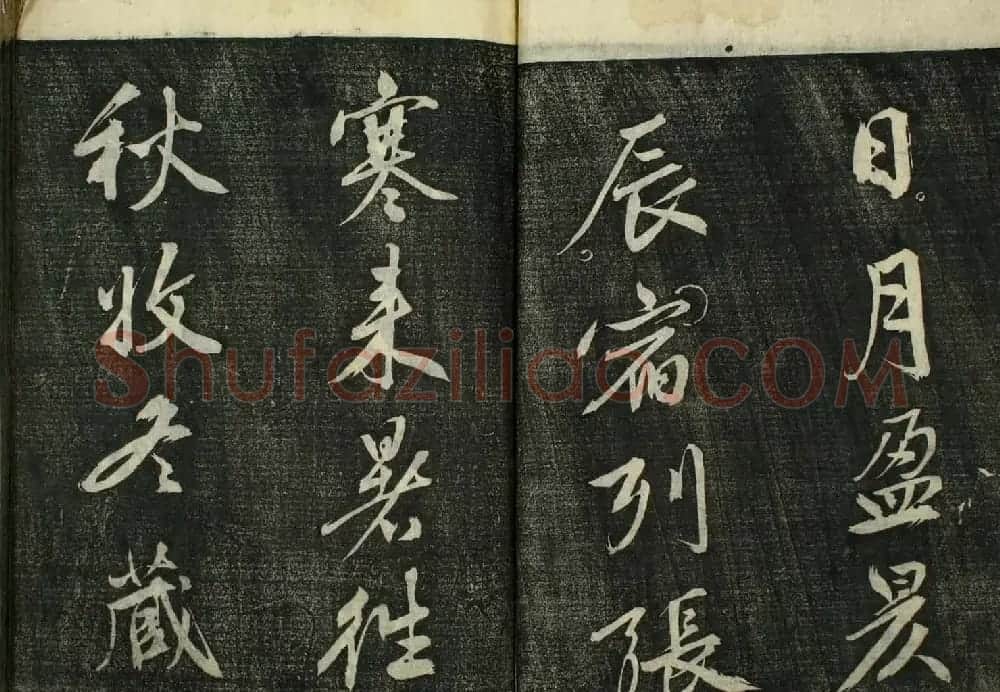 日月盈昃
辰宿列張
寒来暑往
秋收冬蔵
Shufaziliao.COM